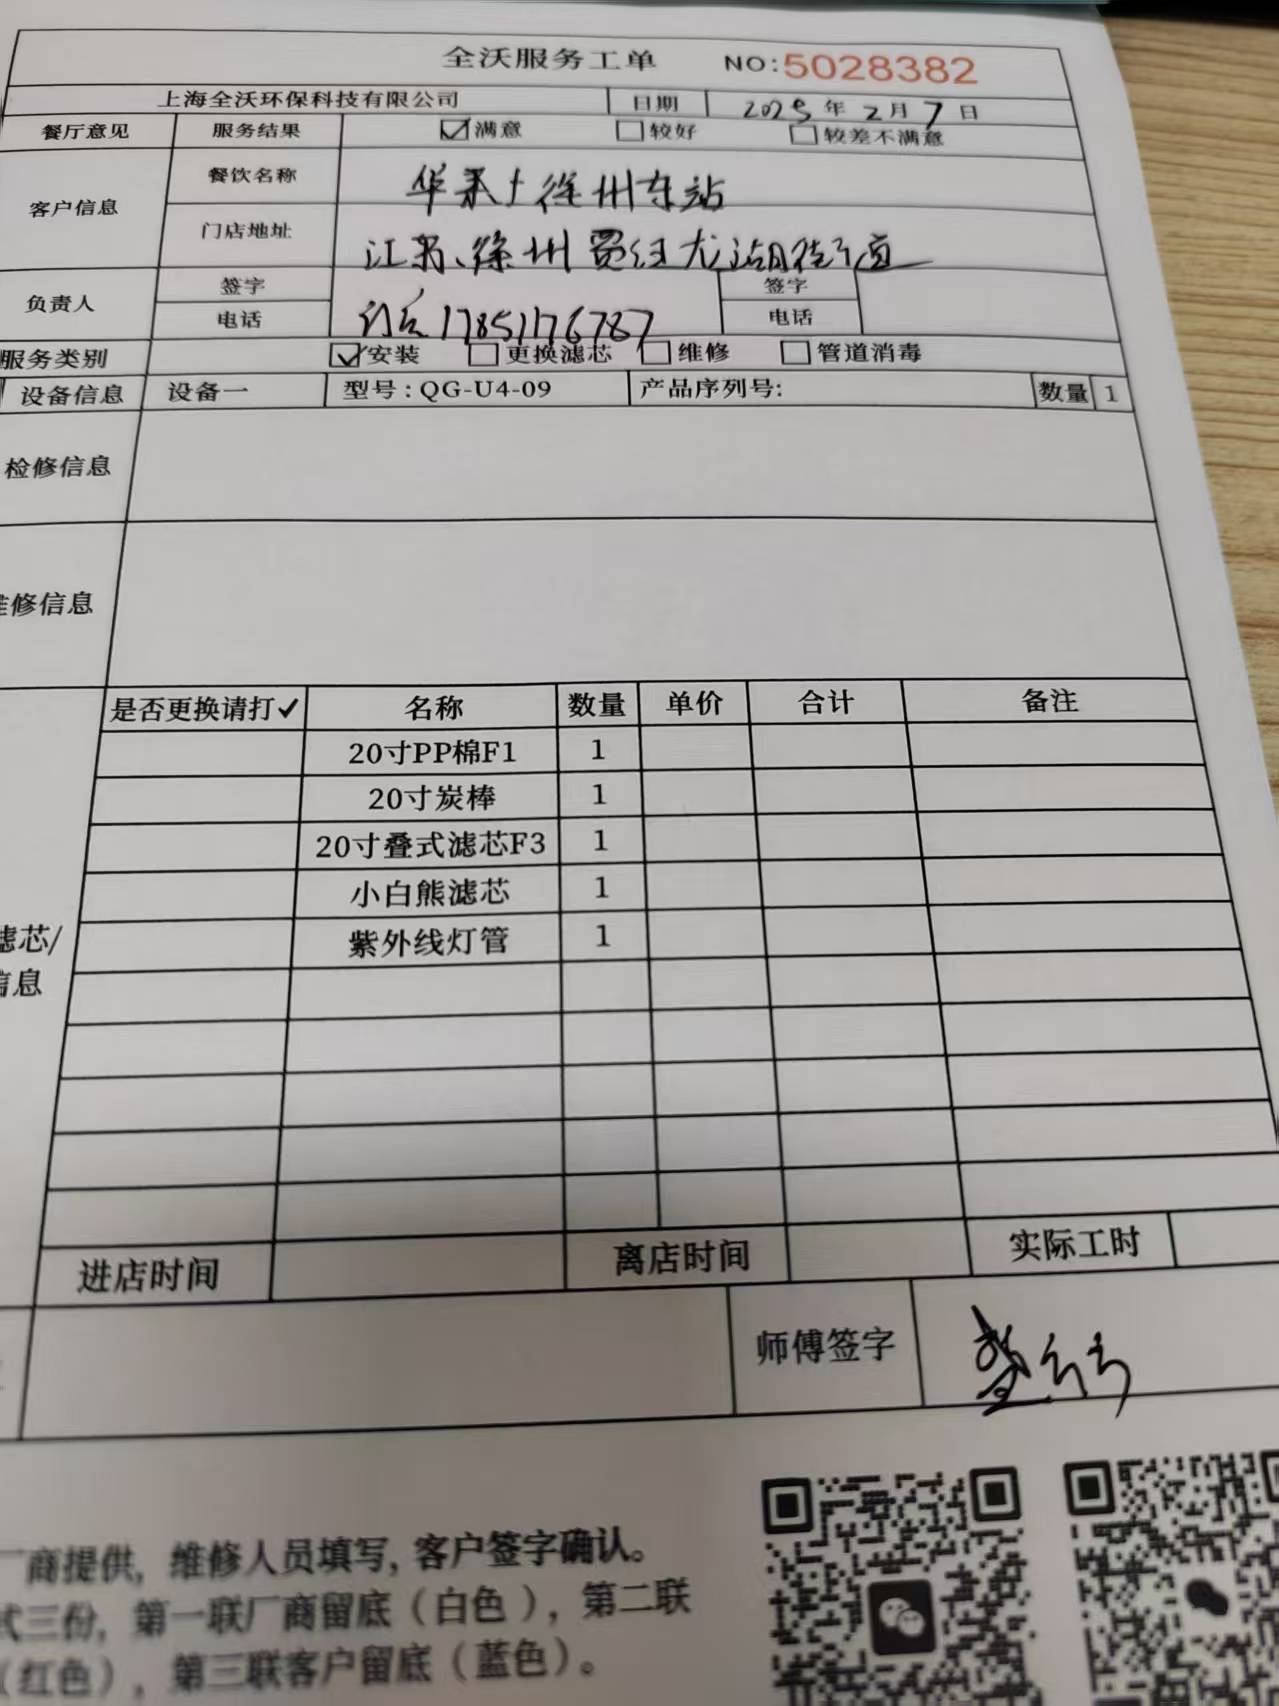 全沃服务工单 NO:5028382
上海全沃环保科技有限公司 日期 2025年2月7日
餐厅意见 服务结果 ☑满意 □较好 □较差不满意
客户信息 餐饮名称 华莱士徐州东站
门店地址 江苏、徐州贾汪 湖街道
负责人 签字 签字
电话 17851176787 电话
服务类别 ☑安装 □更换滤芯 □维修 □管道消毒
设备信息 设备一 型号:QG-U4-09 产品序列号: 数量 1
检修信息
修信息
是否更换请打✓ 名称 数量 单价 合计 备注
20寸PP棉F1 1
20寸炭棒 1
20寸叠式滤芯F3 1
小白熊滤芯 1
紫外线灯管 1
滤芯/
信息
进店时间 离店时间 实际工时
师傅签字
商提供, 维修人员填写, 客户签字确认。
式三份, 第一联厂商留底(白色), 第二联
(红色), 第三联客户留底(蓝色)。